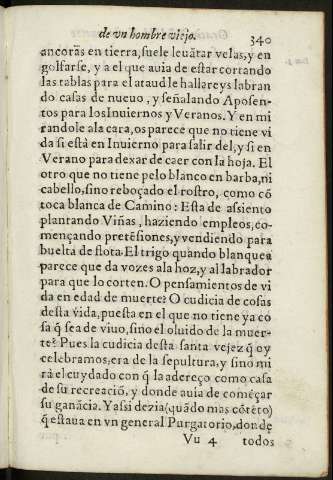 de vn hombre viejo.
340
ancorãs en tierra, suele leuãtar velas, y en
golfarse, y a el que auia de estar cortando
las tablas para el ataud le hallareys labran
do casas de nueuo, y señalando Aposen-
tos para los Inuiernos y Veranos. Y en mi
randole ala cara, os parece que no tiene vi
da si està en Inuierno para salir del, y si en
Verano para dexar de caer con la hoja. El
otro que no tiene pelo blanco en barba, ni
cabello, sino reboçado el rostro, como cõ
toca blanca de Camino: Esta de assiento
plantando Viñas, haziendo empleos, co-
mençando pretẽsiones, y vendiendo para
buelta de flota. El trigo quando blanquea
parece que da vozes ala hoz, y al labrador
para que lo corten. O pensamientos de vi
da en edad de muerte? O cudicia de cosas
desta vida, puesta en el que no tiene ya co
sa q̃ sea de viuo, sino el oluido de la muer-
te? Pues la cudicia desta santa vejez q̃ oy
celebramos, era de la sepultura, y sino mi
rà el cuydado con q̃ la adereço como casa
de su recreaciõ, y donde auia de começar
su ganãcia. Y assi dezia (quãdo mas cõtẽto)
q̃ estaua en vn general Purgatorio, donde
Vu 4 todos